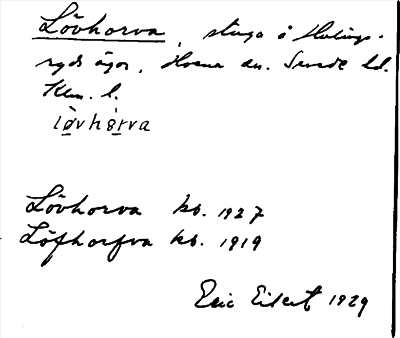 Lövhorva, stuga å Hulings-
ryds ägor, Hvena sn. Sevede hd.
Klm. l.
lø̀vhɷ̀rva
Lövhorva kb. 1927
Löfhorfva kb. 1919
Eric Eilert 1929